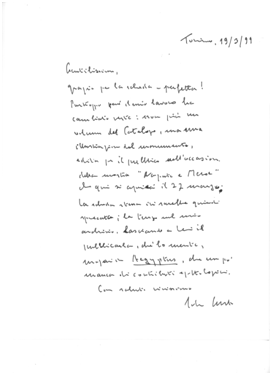 Torino, 19/3/99
Gentilissimo,
grazie per la scheda - perfetta!
Purtroppo quel mio lavoro ha
cambiato veste: non più un
volume del Catalogo, ma una
illustrazione del monumento,
edita per il pubblico nell'occasione
della mostra "Napata e Meroe"
che qui si aprirà il 27 marzo.
La scheda stessa mi sarebbe quindi
sprecata; la tengo nel mio
archivio, lasciando a Lei il
pubblicarla, che lo merita,
magari in Aegyptus, che un po'
manca di contributi egittologici.
Con saluto vivissimo